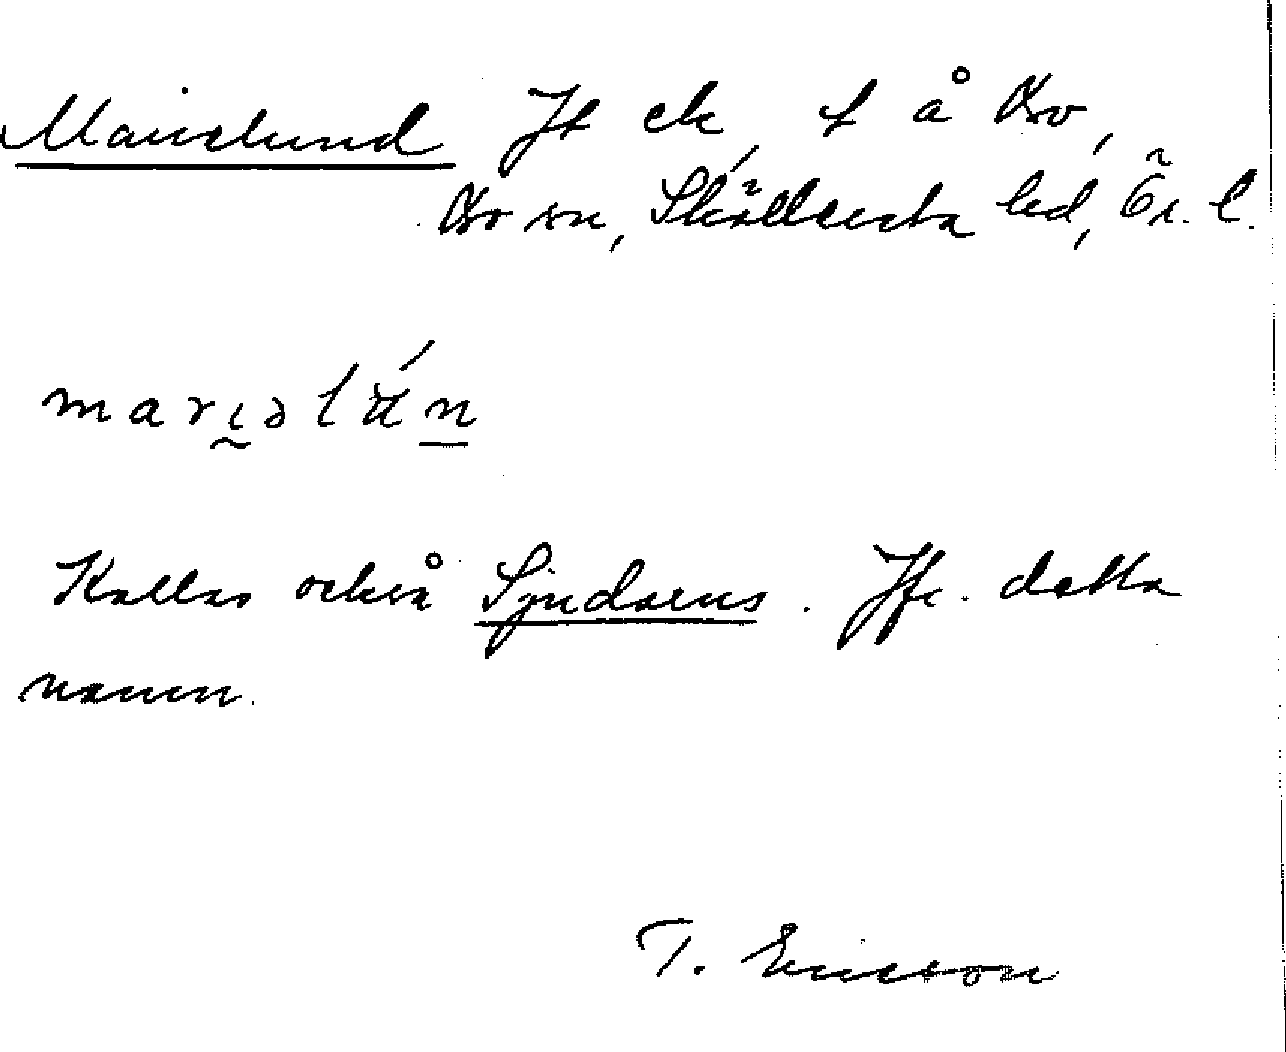 Marielund Jt ek, f å Bo,
Bo sn, Sköllersta hd, Ör. l.
mariəlu̇́n
Kallas också Sjudarns. Jfr. detta
namn.
T. Ericson